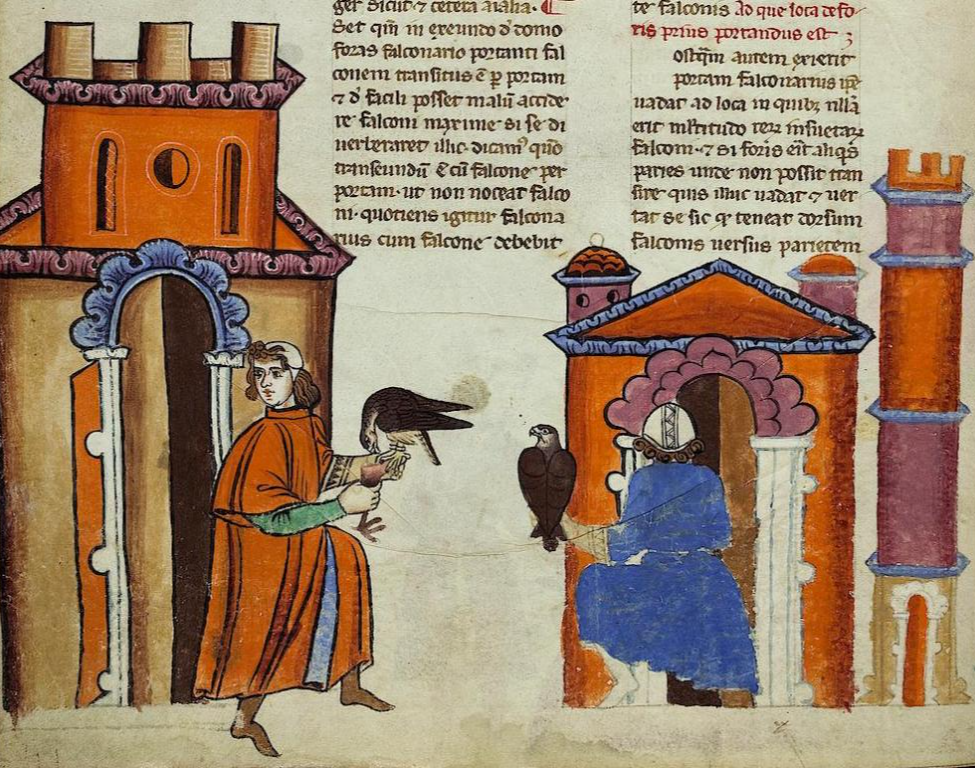 ger sicut ⁊ cetera aīalia. ¶
Set qm̄ in exeundo d̓ domo
foras falconario portanti fal
conem transitus ē ꝑ portam
⁊ d̓ facili posset malū accide
re falconi maxime si se di
uerberaret illic. dicam᷒ quō
transeundū ē cū falcone per
portam. ut non noceat falco
ni. quotiens igitur falcona
rius cum falcone debebit
te falconis Ad que loca defo
ris prius portandus est
ostq̄m autem exierit
portam falconarius ip̄e
uadat ad loca in quibꝫ nulla
erit multitudo rerum insuetarum
falconi. ⁊ si foris erit aliqͥs
paries unde non possit tran
sire quis illuc uadat ⁊ uer
tat se sic ꝙ teneat dorsum
falconis uersus parietem